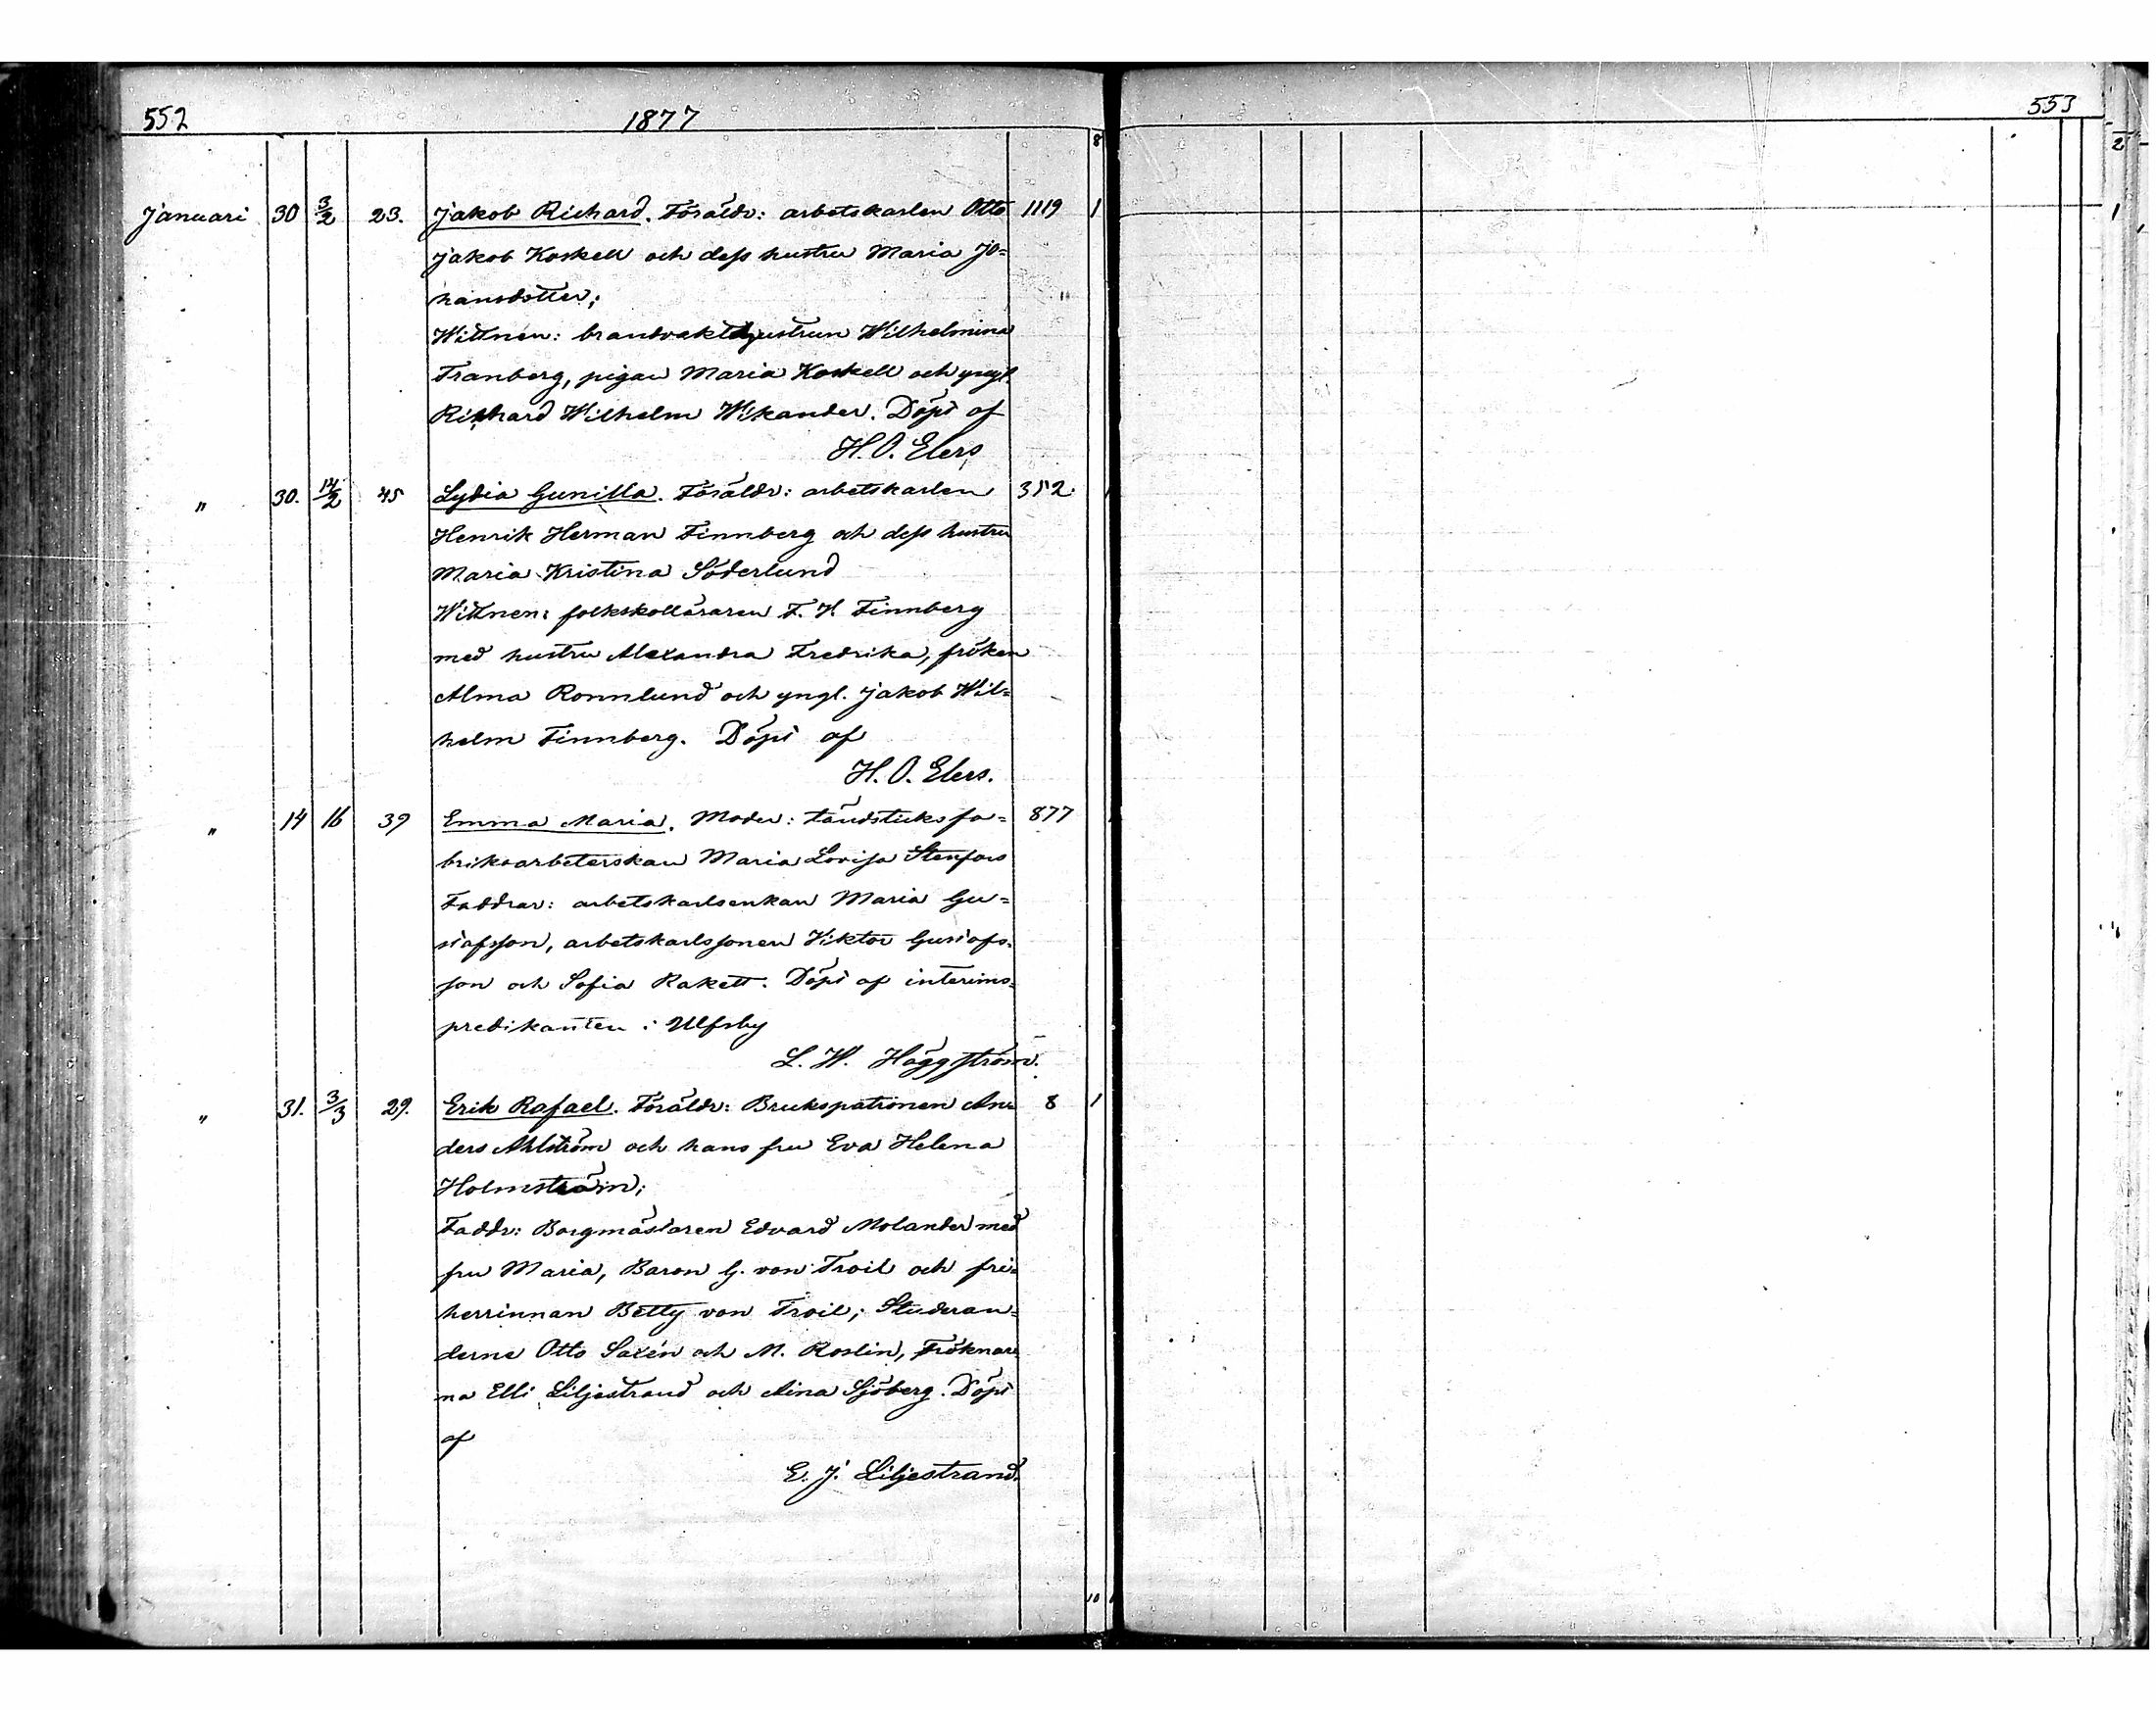 552 1877 553
8 2
Januari 30 3/2 23. Jakob Richard. Föräldr: arbetskarlen Otto 1119 1 1
Jakob Koskell och dess hustru Maria Jo=
hansdotter;
Wittnen: brandvaktshustrun Wilhelmina
Tranberg, pigan Maria Koskell och yngl.
Richard Wilhelm Wikander. Döpt af
H. O. Elers
" 30. 14/2 45 Lydia Gunilla. Föräldr: arbetskarlen 352.
Henrik Herman Finnberg och dess hustru
Maria Kristina Söderlund
Wittnen: folkskolläraren F. H. Finnberg
med hustru Alexandra Fredrika, fröken
Alma Ronnlund och yngl. Jakob Wil=
helm Finnberg. Döpt af
H. O. Elers.
" 14 16 39 Emma Maria. Moder: tändsticksfa= 877
briksarbeterskan Maria Lovisa Stenfors
Faddrar: arbetskarlsenkan Maria Gu=
stafsson, arbetskarlssonen Viktor Gustafs=
son och Sofia Rakett. Döpt af interims=
predikanten i Ulfsby
L. W. Häggström.
" 31. 3/3 29. Erik Rafael. Föräldr: Brukspatronen An= 8 1
ders Ahlström och hans fru Eva Helena
Holmström;
Faddr: Borgmästaren Edvard Molander med
fru Maria, Baron G. von Troil och fri=
herrinnan Betty von Troil; Studeran=
derne Otto Saxén och M. Roslin, Fröknar=
na Elli Liljestrand och Aina Sjöberg. Döpt
af
E. J. Liljestrand.
10